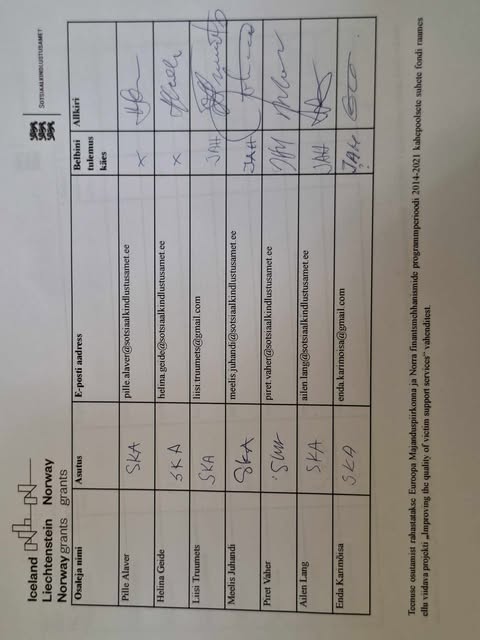 Iceland
Liechtenstein Norway
Norway grants grants
SOTSIAALKINDLUSTUSAMET
Osaleja nimi Asutus E-posti aadress Belbini tulemus käes Allkiri
Pille Alaver SKA pille.alaver@sotsiaalkindlustusamet.ee x
Helina Geide SKA helina.geide@sotsiaalkindlustusamet.ee x
Liisi Truumets SKA liisi.truumets@gmail.com JAH
Meelis Juhandi SKA meelis.juhandi@sotsiaalkindlustusamet.ee JAH
Piret Vaher piret.vaher@sotsiaalkindlustusamet.ee
Ailen Lang SKA ailen.lang@sotsiaalkindlustusamet.ee JAH
Enda Karimõisa SKA enda.karimoisa@gmail.com JAH ?
Teenuse osutamist rahastatakse Euroopa Majanduspiirkonna ja Norra finantsmehhanismide programmperioodi 2014-2021 kahepoolsete suhete fondi raames
ellu viidava projekti „Improving the quality of victim support services" vahenditest.